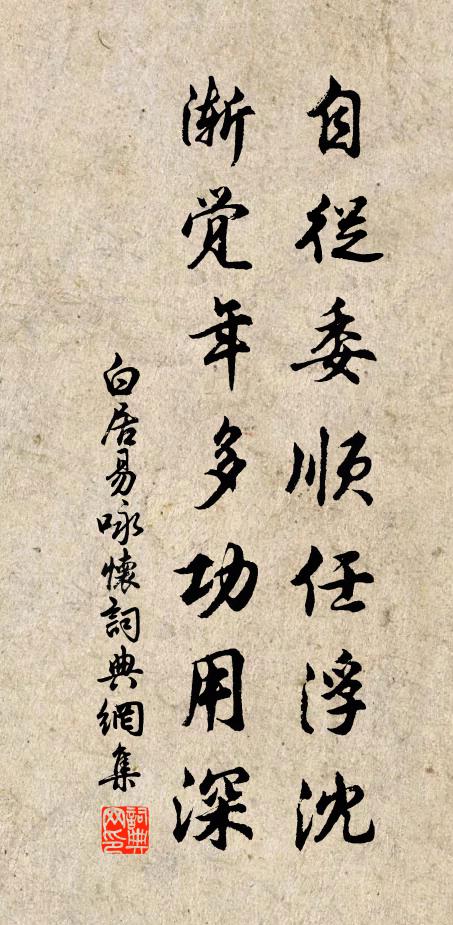 自從委順任浮沈
漸覚年多功用深
白居易咏懷詞典網集
詞典網印